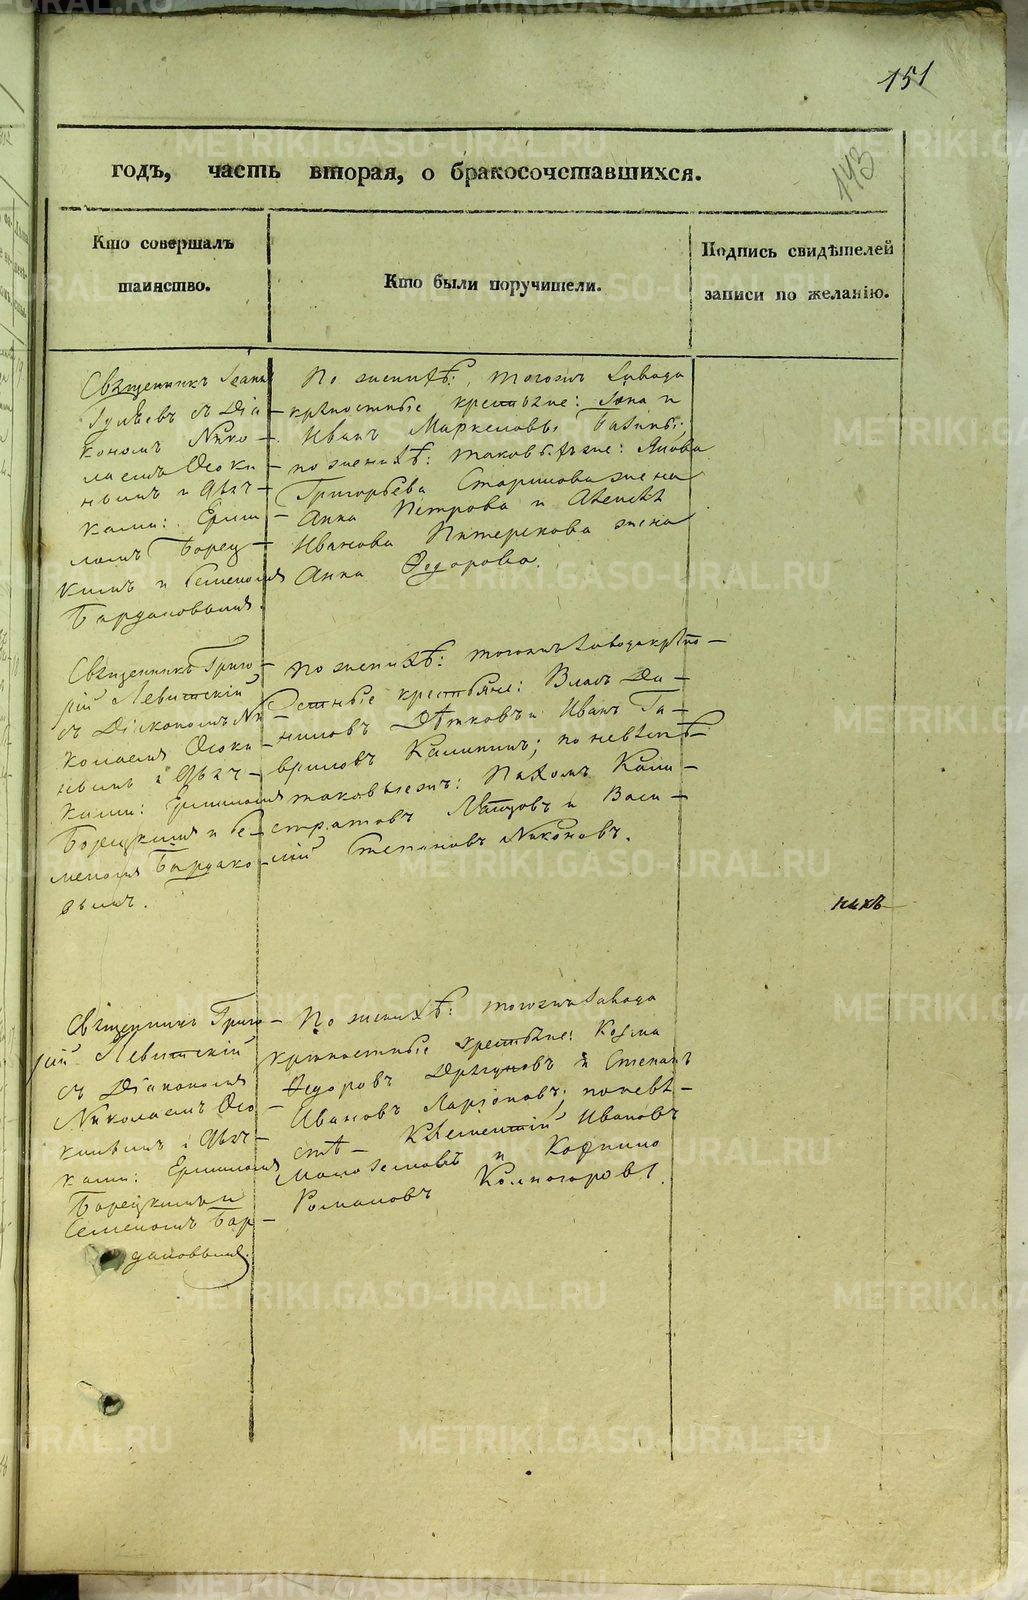 151
143
годъ, часть вторая, о бракосочетавшихся.
Кто совершалъ
таинство.
Кто были поручители.
Подпись свидѣтелей
записи по желанію.
Священникъ Іоаннъ
Гуляевъ съ Діа-
кономъ Нико-
лаемъ Осоки-
нымъ и Дьяч-
ками: Ермил-
ломъ Борец-
кимъ и Семеномъ
Бардаковымъ.
По женихѣ: тогожъ Завода
крѣпостные крестьяне: Іона и
Иванъ Маркеловы Бабины;
по женихѣ: таковыеже: Якова
Григорьева Старикова жена
Анна Петрова и Алексѣя
Иванова Питерскова жена
Анна Ѳедорова.
Священникъ Григо-
рій Левитскій
съ Діакономъ Ни-
колаемъ Осоки-
нымъ и Дьяч-
ками: Ермиломъ
Борецкимъ и Се-
меномъ Бардако-
вымъ.
По женихѣ: тогожъ Завода крѣпо-
стные крестьяне: Власъ Да-
ниловъ Дѣтковъ и Иванъ Га-
вриловъ Калининъ; по невѣстѣ
таковыежъ: Пахомъ Кали-
стратовъ и Васи-
лій Степановъ Никоновъ.
ихъ
Священникъ Григо-
рій Левитскій
съ Діакономъ
Николаемъ Осо-
кинымъ и Дьяч-
ками: Ермиломъ
Борецкимъ и
Семеномъ Бар-
даковымъ.
По женихѣ: тогожъ Завода
крѣпостные крестьяне: Козма
Ѳедоровъ Драгуновъ и Степанъ
Ивановъ Ларіоновъ; по невѣ-
стѣ - Климентій Ивановъ
Малоземовъ и
Романовъ Колногоровъ.
METRIKI.GASO-URAL.RU